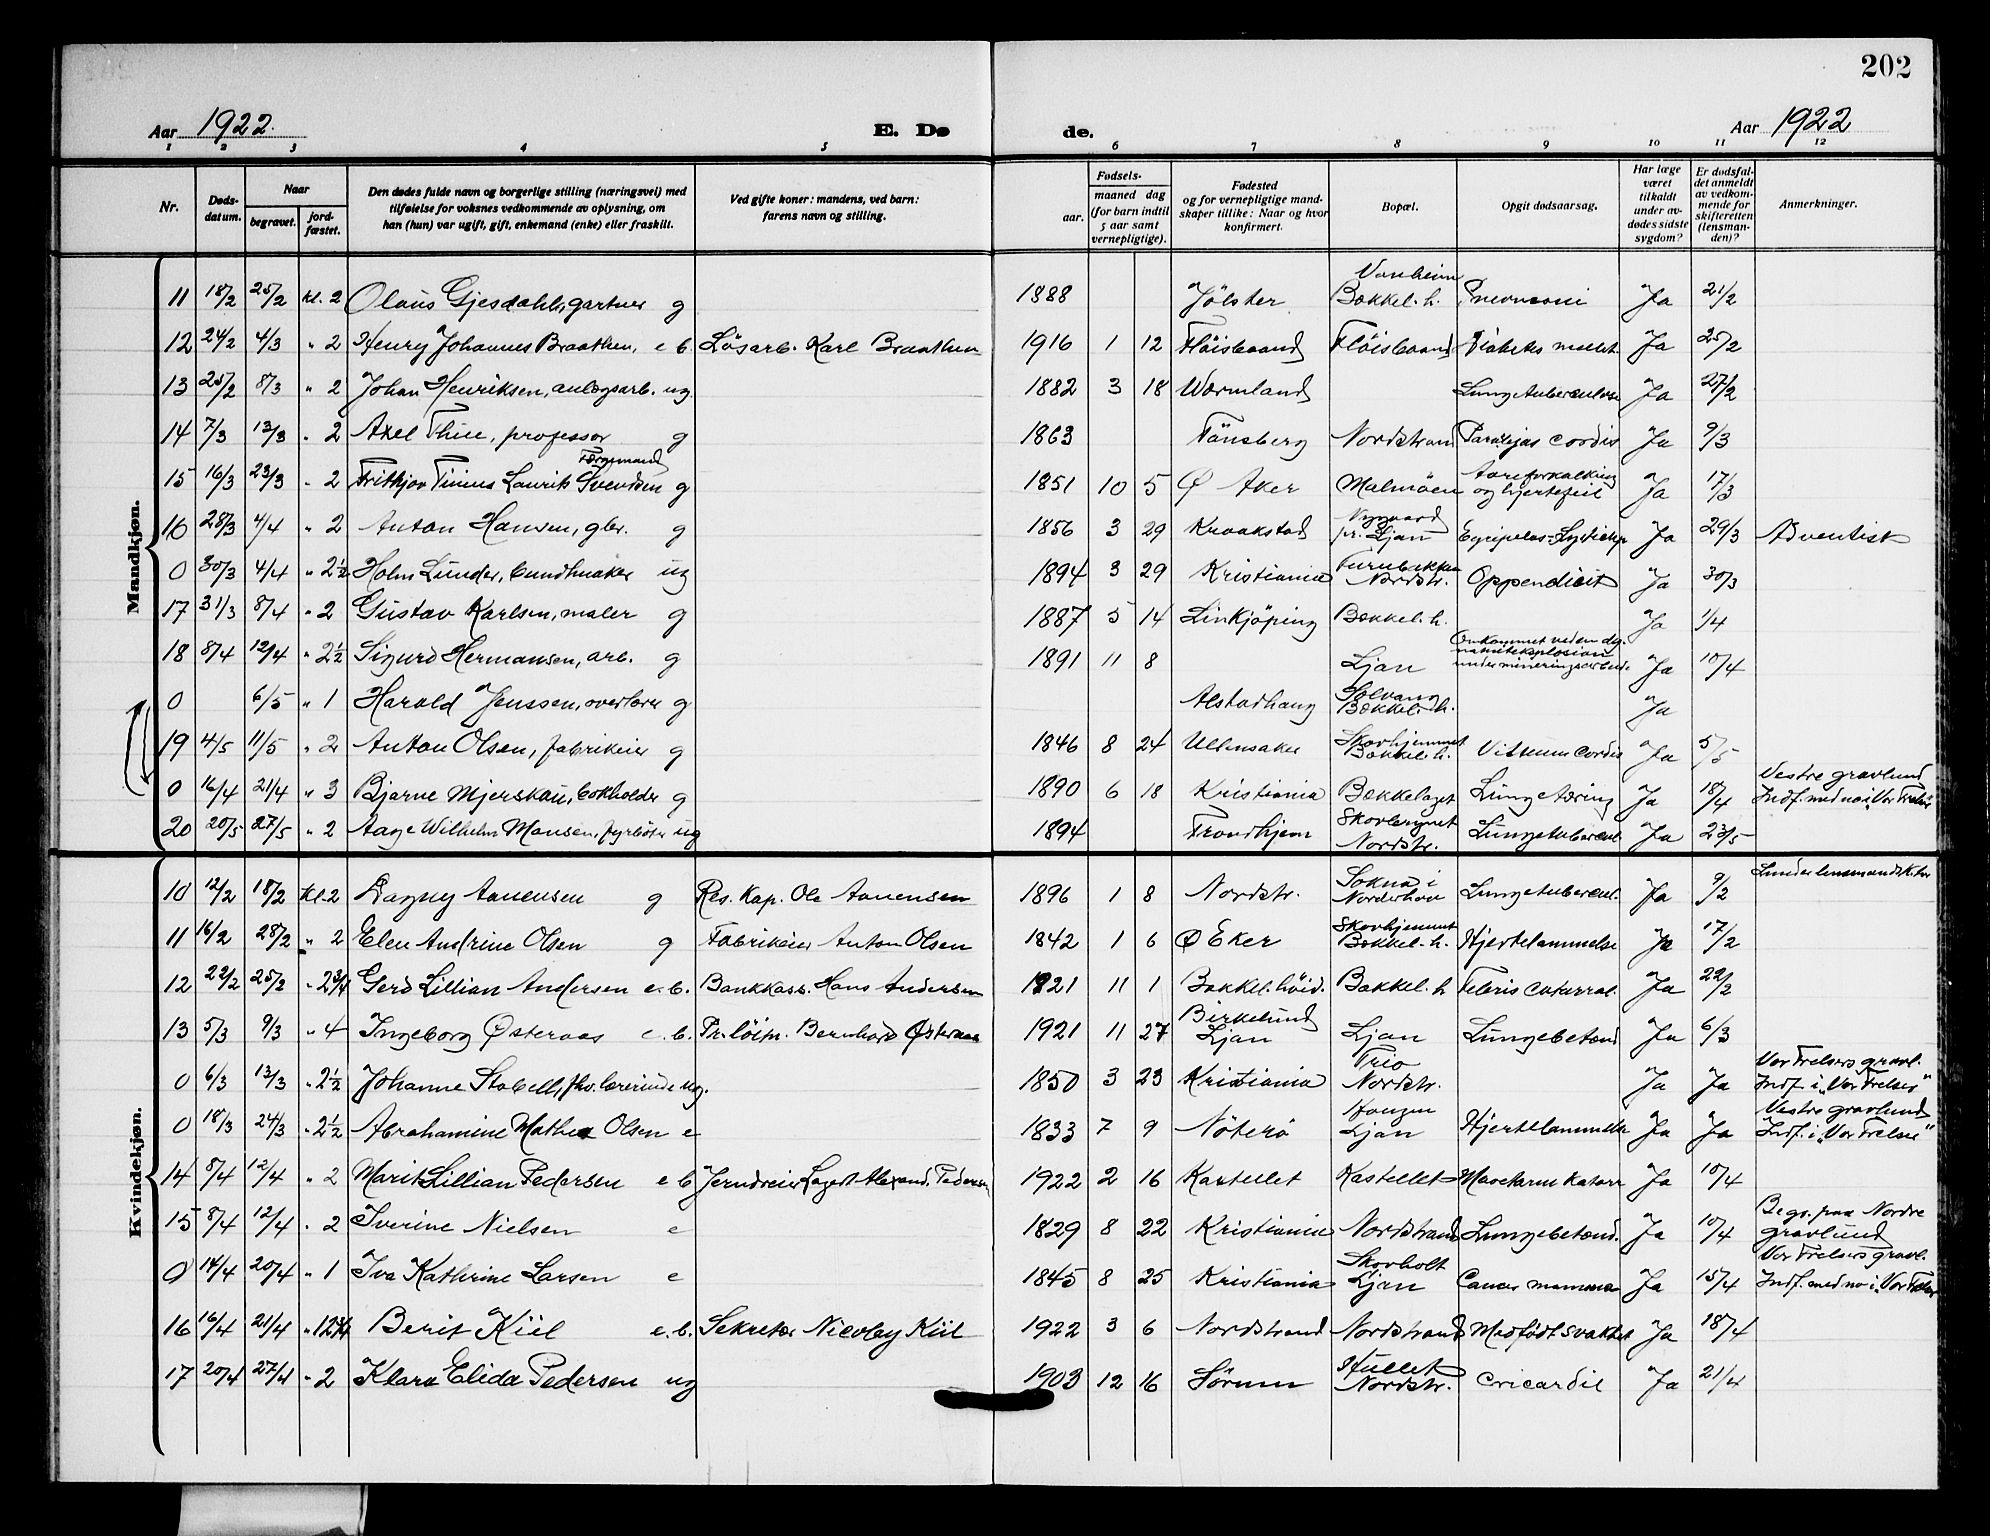 202
Aar 1922. E. Dø de. Aar 1922
1 2 3 4 5 6 7 8 9 10 11 12
Nr. Døds-datum. Naar begravet. jord-fæstet. Den dødes fulde navn og borgerlige stilling (næringsvei) med tilføielse for voksnes vedkommende av oplysning, om han (hun) var ugift, gift, enkemand (enke) eller fraskilt. Ved gifte koner: mandens, ved barn: farens navn og stilling. Fødsels- aar. maaned dag (for barn indtil 5 aar samt vernepligtige). Fødested og for vernepligtige mandskaper tillike: Naar og hvor konfirmert. Bopæl. Opgit dødsaarsag. Har læge været tilkaldt under avdødes sidste sygdom? Er dødsfaldet anmeldt av vedkommende for skifteretten (lensmanden)? Anmerkninger.
Mandkjøn.
11 18/2 25/2 kl. 2 Olaus Gjesdahl, gartner g 1888 Jölster Bækkel. h. Ja 21/2
12 24/2 4/3 " 2 Henry Johannes Braathen, e b. Lösarb. Karl Braathen 1916 1 12 Flöisbaand Flöisbaand Diabetes mellit. Ja 25/2
13 25/2 8/3 " 2 Johan Henriksen, anlægsarb. ug 1882 3 18 Wærmland Lungetuberculose Ja 27/2
14 7/3 13/3 " 2 Axel Thue, professor g 1863 Tönsberg Nordstrand Paralyjas cordis Ja 9/3
15 16/3 23/3 " 2 Frithjov Tinius Laurits Svendsen Færgemand g 1851 10 5 Ø Aker Malmöen Aareforkalkning og hjertefeil Ja 17/3
16 28/3 4/4 " 2 Anton Hansen, gbr. g 1856 3 29 Kraakstad Nygaard pr. Ljan Ja 29/3 Adventist
0 30/3 4/4 " 2½ Holm Lunder, bundtmaker ug 1894 3 29 Kristiania Furubakken Nordstr. Appendicit Ja 30/3
17 31/3 8/4 " 2 Gustav Karlsen, maler g 1887 5 14 Linkjöping Bækkel. h. Ja 1/4
18 8/4 12/4 " 2½ Sigurd Hermansen, arb. g 1891 11 8 Ljan Omkommet ved en dynamiteksplosion under mineringsarbeid. Ja 10/4
0 6/5 " 1 Harald Jenssen, overlærer g Alstadhaug Solvang Bækkel. h. Ja
19 4/5 11/5 " 2 Anton Olsen, fabrikeier g 1846 8 24 Ullensaker Skovhjemmet Bækkel. h. Vitium cordis Ja 5/5
0 16/4 21/4 " 3 Bjarne Mjerskau, bokholder g 1890 6 18 Kristiania Bækkelaget Lungetæring Ja 18/4 Vestre gravlund Indf. med no i "Vor Frelser"
20 20/5 27/5 " 2 Aage Wilhelm Monsen, fyrböter ug 1894 Trondhjem Nordstr. Lungetubercul. Ja 23/5
Kvindekjøn.
10 12/2 18/2 Kl. 2 Dagny Aanensen g Res. Kap. Ole Aanensen 1896 1 8 Nordstr. Sokna i Norderhov Lungetubercul. Ja 9/2
11 16/2 28/2 " 2 Elen Andrine Olsen g Fabrikeier Anton Olsen 1842 1 6 Ø Eker Skovhjemmet Bækkel. h. Hjertelammelse Ja 17/2
12 22/2 25/2 " 2¾ Gerd Lillian Andersen e. b. Bankkass. Hans Andersen 1921 11 1 Bækkel. höid. Bækkel. h Febris catarral. Ja 22/2
13 5/3 9/3 " 4 Ingeborg Østeraas e. b. Pr. löitn. Bernhard Østeraas 1921 11 27 Birkelund Ljan Ljan Lungebetænd Ja 6/3
0 6/3 13/3 " 2½ Johanne Stabell, fhv. lærerinde ug. 1850 3 23 Kristiania Trio Nordstr. Ja Ja Vor Frelsers gravl. Indf. i "Vor Frelser"
0 18/3 24/3 " 2½ Abrahamine Mathea Olsen e 1833 7 9 Nöterö Haugen Ljan Hjertelammelse Ja Ja Vestre gravlund Indf. i "Vor Frelser"
14 8/4 12/4 " 2 Marit Lillian Pedersen e b Jerndreier Lagert Alexand. Pedersen 1922 2 16 Kastellet Kastellet Mavetarm katarr Ja 10/4
15 8/4 12/4 " 2 Iverine Nielsen e 1829 8 22 Kristiania Nordstrand Lungebetænd. Ja 10/4 Begr. paa Nordre gravlund
0 14/4 20/4 " 1 Iva Kathrine Larsen e 1845 8 25 Kristiania Skovholt Ljan Cancer mamma Ja 15/4 Vor Frelsers gravl. Indf. med no i "Vor Frelser"
16 16/4 21/4 " 12¾ Berit Kiil e. b. Sekretær Nicolay Kiil 1922 3 6 Nordstrand Nordstrand Medfödt svakhet Ja 18/4
17 20/4 27/4 " 2 Klara Elida Pedersen ug 1903 12 16 Sörum Hullet Nordstr. Ja 21/4